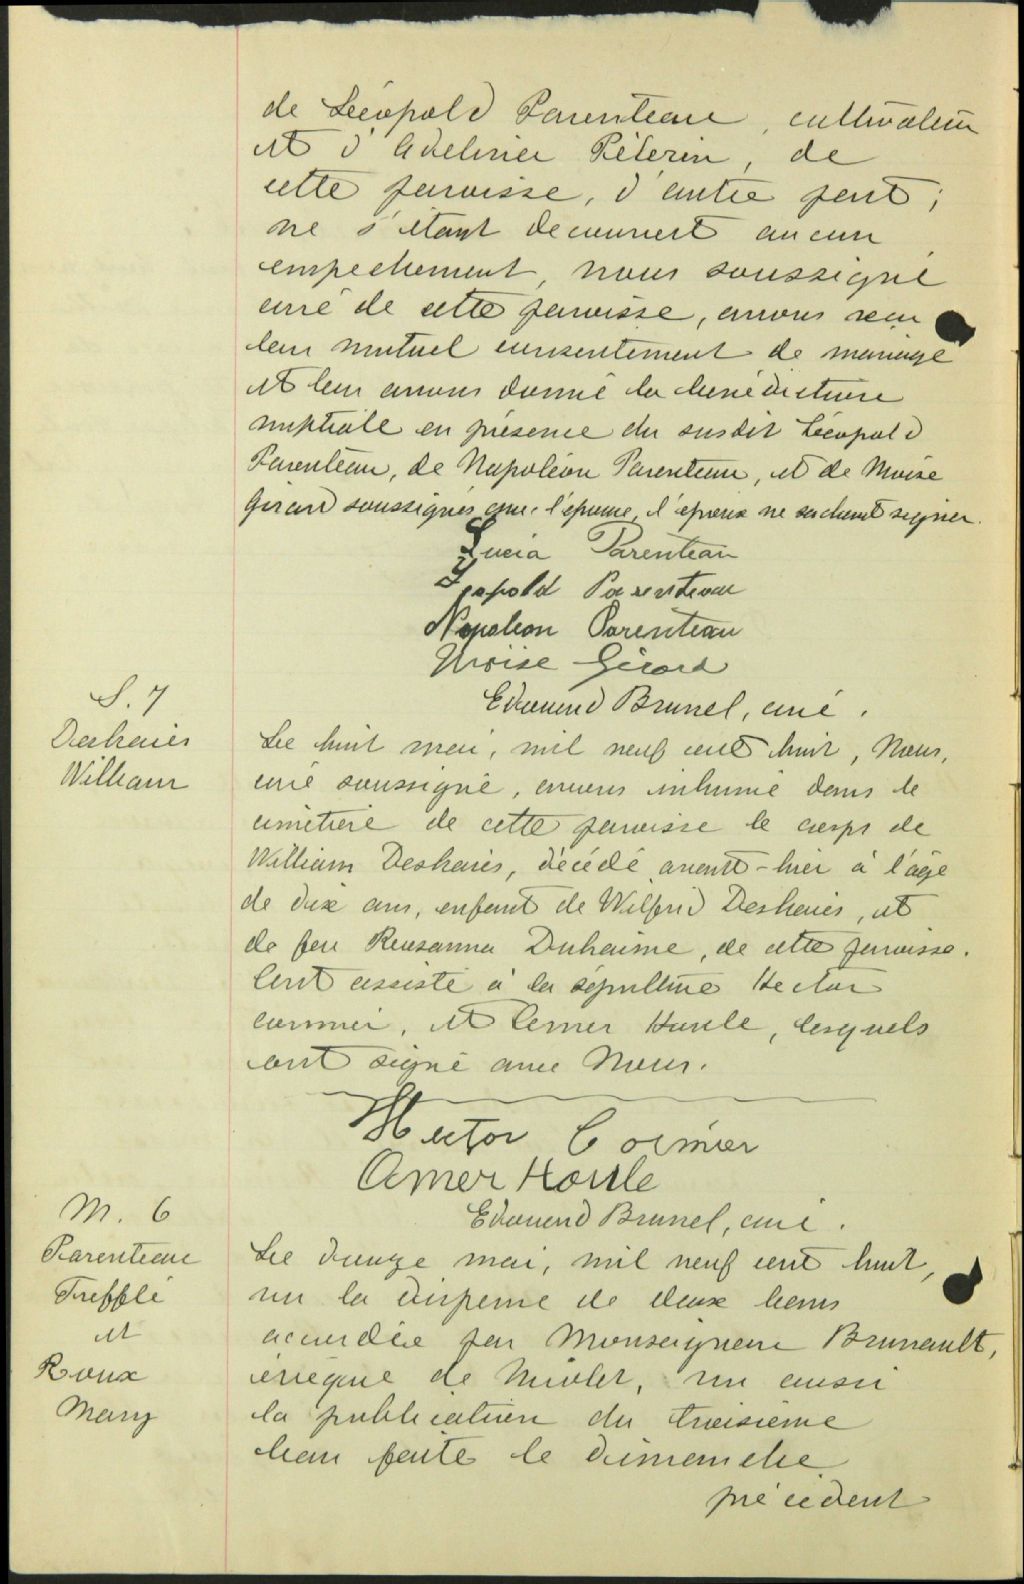 de Léopold Parenteau, cultivateur
et d'Adelinee Pélerin, de
cette paroisse, d'autre part;
ne s'étant decouvert aucun
empechement, nous soussigné
curé de cette paroisse, avons reçu
leur mutuel consentement de mariage
et leur avons donné la bénédiction
nuptiale en présence du susdit Léopold
Parenteau, de Napoléon Parenteau, et de Moïse
Girard soussignés avec l'épouse, l'époux ne sachant signer.
Lucia Parenteau
Leopold Parenteau
Napoleon Parenteau
Moïse Girard
Edouard Brunel, curé.
S. 7
Deshaies
William
Le huit mai, mil neuf cent huit, Nous,
curé soussigné, avons inhumé dans le
cimetière de cette paroisse le corps de
William Deshaies, décédé avant-hier à l'âge
de dix ans, enfant de Wilfrid Deshaies, et
de feu Rousanna Duhaime, de cette paroisse.
Ont assisté à la sépulture Hector
Cormier, et Omer Houle, lesquels
ont signé avec Nous.
Hector Cormier
Omer Houle
Edouard Brunel, curé.
M. 6
Parenteau
Trefflé
et
Roux
Mary
Le douze mai, mil neuf cent huit,
vu la dispense de deux bans
accordée par Monseigneur Brunault,
évêque de Nicolet, vu aussi
la publication du troisième
ban faite le dimanche
précédent